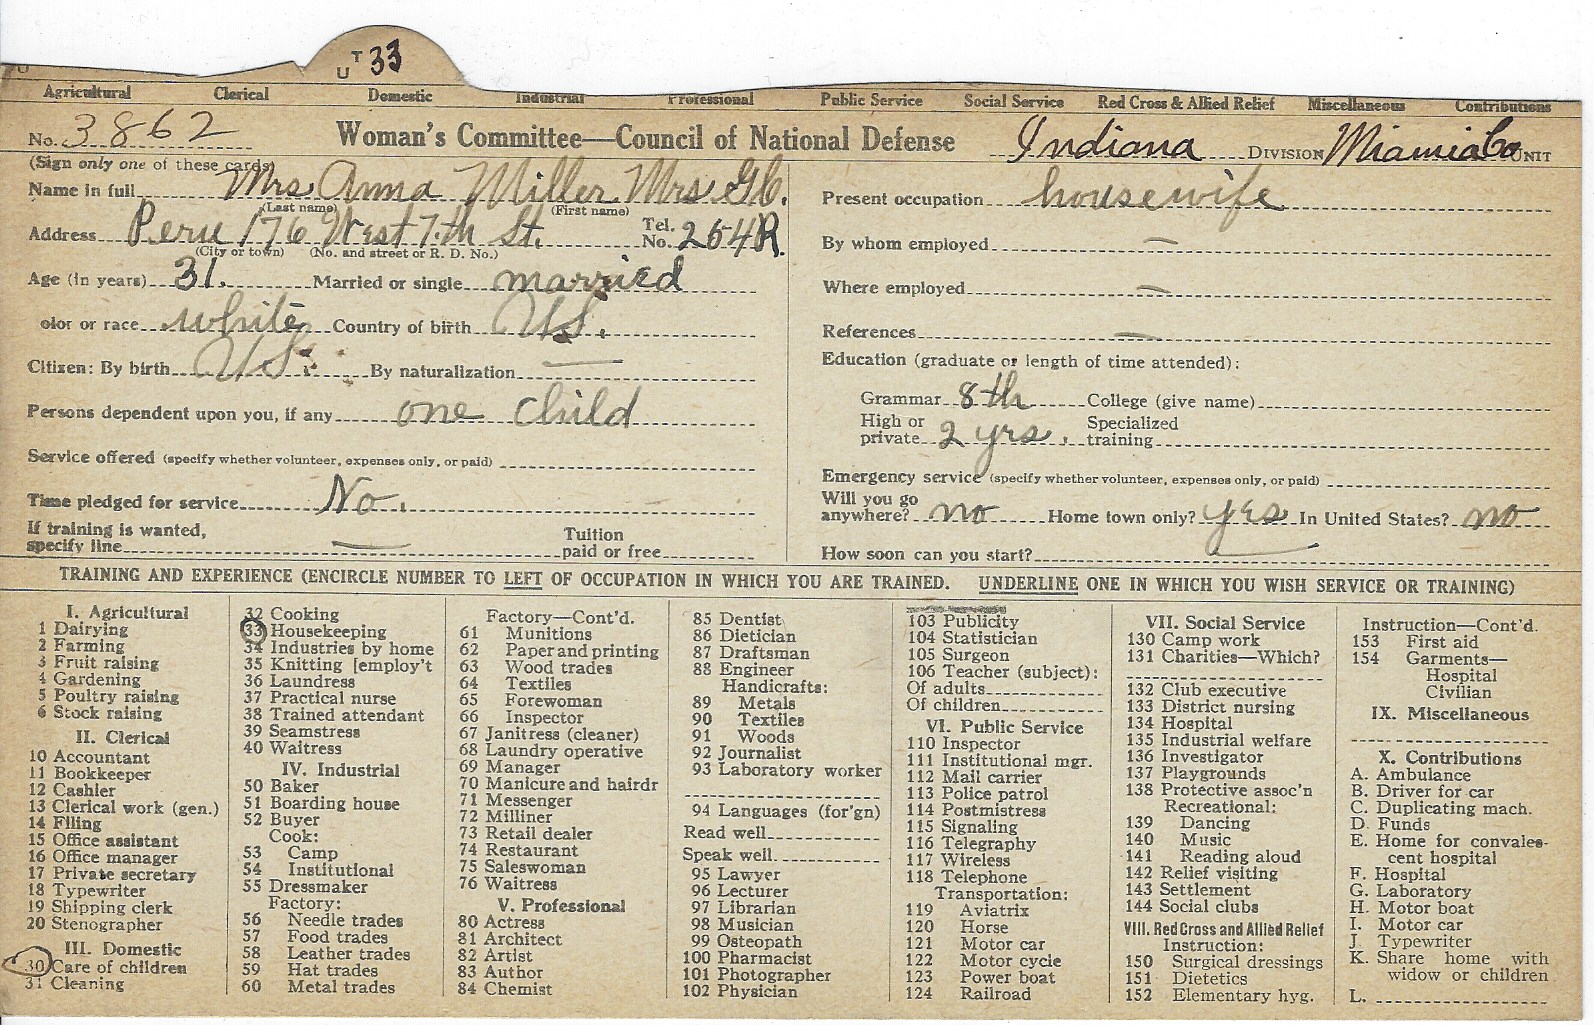 U T 33
Agricultural Clerical Domestic Industrial Professional Public Service Social Service Red Cross & Allied Relief Miscellaneous Contributions
No. 3862 Woman's Committee—Council of National Defense Indiana DIVISION Miami Co UNIT
(Sign only one of these cards)
Name in full Mrs Anna Miller Mrs G.C.
(Last name) (First name)
Address Peru 176 West 7.th St. Tel. No. 254R.
(City or town) (No. and street or R. D. No.)
Age (in years) 31. Married or single married
olor or race white Country of birth U.S.
Citizen: By birth U.S. By naturalization —
Persons dependent upon you, if any one child
Service offered (specify whether volunteer, expenses only, or paid)
Time pledged for service No.
If training is wanted,
specify line — Tuition paid or free
Present occupation housewife
By whom employed —
Where employed —
References —
Education (graduate or length of time attended):
Grammar 8th College (give name)
High or private 2 yrs. Specialized training
Emergency service (specify whether volunteer, expenses only, or paid)
Will you go
anywhere? no Home town only? yes In United States? no
How soon can you start?
TRAINING AND EXPERIENCE (ENCIRCLE NUMBER TO LEFT OF OCCUPATION IN WHICH YOU ARE TRAINED. UNDERLINE ONE IN WHICH YOU WISH SERVICE OR TRAINING)
I. Agricultural
1 Dairying
2 Farming
3 Fruit raising
4 Gardening
5 Poultry raising
6 Stock raising
II. Clerical
10 Accountant
11 Bookkeeper
12 Cashier
13 Clerical work (gen.)
14 Filing
15 Office assistant
16 Office manager
17 Private secretary
18 Typewriter
19 Shipping clerk
20 Stenographer
III. Domestic
30 Care of children
31 Cleaning
32 Cooking
33 Housekeeping
34 Industries by home
35 Knitting [employ't
36 Laundress
37 Practical nurse
38 Trained attendant
39 Seamstress
40 Waitress
IV. Industrial
50 Baker
51 Boarding house
52 Buyer
Cook:
53 Camp
54 Institutional
55 Dressmaker
Factory:
56 Needle trades
57 Food trades
58 Leather trades
59 Hat trades
60 Metal trades
Factory—Cont'd.
61 Munitions
62 Paper and printing
63 Wood trades
64 Textiles
65 Forewoman
66 Inspector
67 Janitress (cleaner)
68 Laundry operative
69 Manager
70 Manicure and hairdr
71 Messenger
72 Milliner
73 Retail dealer
74 Restaurant
75 Saleswoman
76 Waitress
V. Professional
80 Actress
81 Architect
82 Artist
83 Author
84 Chemist
85 Dentist
86 Dietician
87 Draftsman
88 Engineer
Handicrafts:
89 Metals
90 Textiles
91 Woods
92 Journalist
93 Laboratory worker
94 Languages (for'gn)
Read well
Speak well
95 Lawyer
96 Lecturer
97 Librarian
98 Musician
99 Osteopath
100 Pharmacist
101 Photographer
102 Physician
103 Publicity
104 Statistician
105 Surgeon
106 Teacher (subject):
Of adults
Of children
VI. Public Service
110 Inspector
111 Institutional mgr.
112 Mail carrier
113 Police patrol
114 Postmistress
115 Signaling
116 Telegraphy
117 Wireless
118 Telephone
Transportation:
119 Aviatrix
120 Horse
121 Motor car
122 Motor cycle
123 Power boat
124 Railroad
VII. Social Service
130 Camp work
131 Charities—Which?
132 Club executive
133 District nursing
134 Hospital
135 Industrial welfare
136 Investigator
137 Playgrounds
138 Protective assoc'n
Recreational:
139 Dancing
140 Music
141 Reading aloud
142 Relief visiting
143 Settlement
144 Social clubs
VIII. Red Cross and Allied Relief
Instruction:
150 Surgical dressings
151 Dietetics
152 Elementary hyg.
Instruction—Cont'd.
153 First aid
154 Garments—
Hospital
Civilian
IX. Miscellaneous
X. Contributions
A. Ambulance
B. Driver for car
C. Duplicating mach.
D. Funds
E. Home for convales-
cent hospital
F. Hospital
G. Laboratory
H. Motor boat
I. Motor car
J. Typewriter
K. Share home with
widow or children
L.